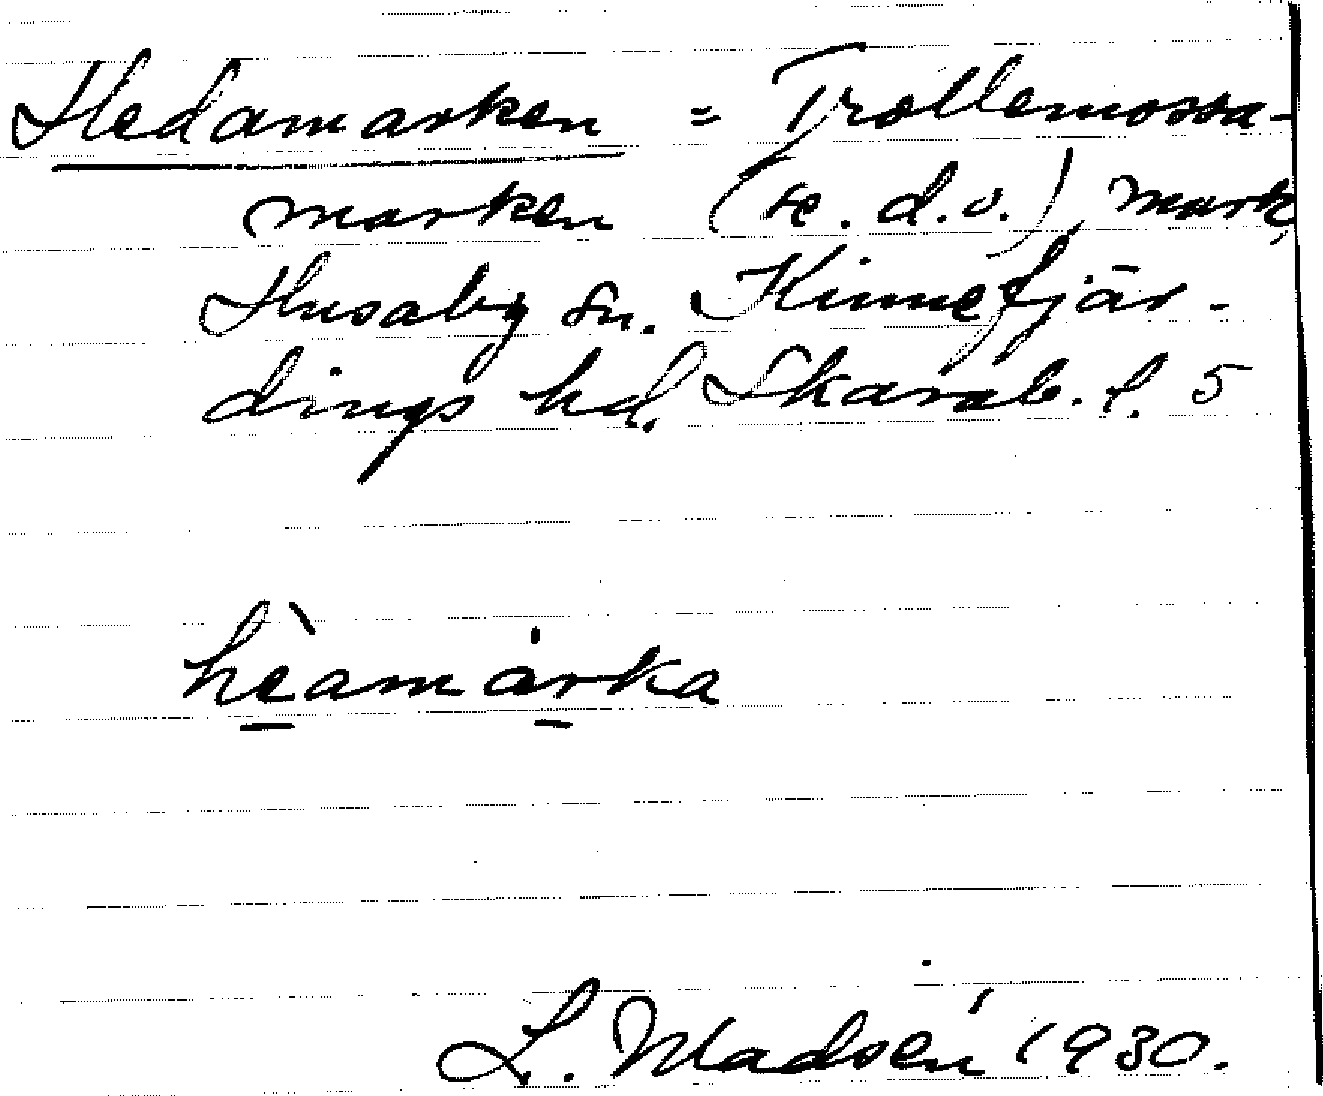 Hedamarken = Trollemossa-
marken (se. d. o.) mark,
Husaby sn. Kinnefjär-
dings hd. Skarab. l. 5
hèamárka
L. Madsén 1930.